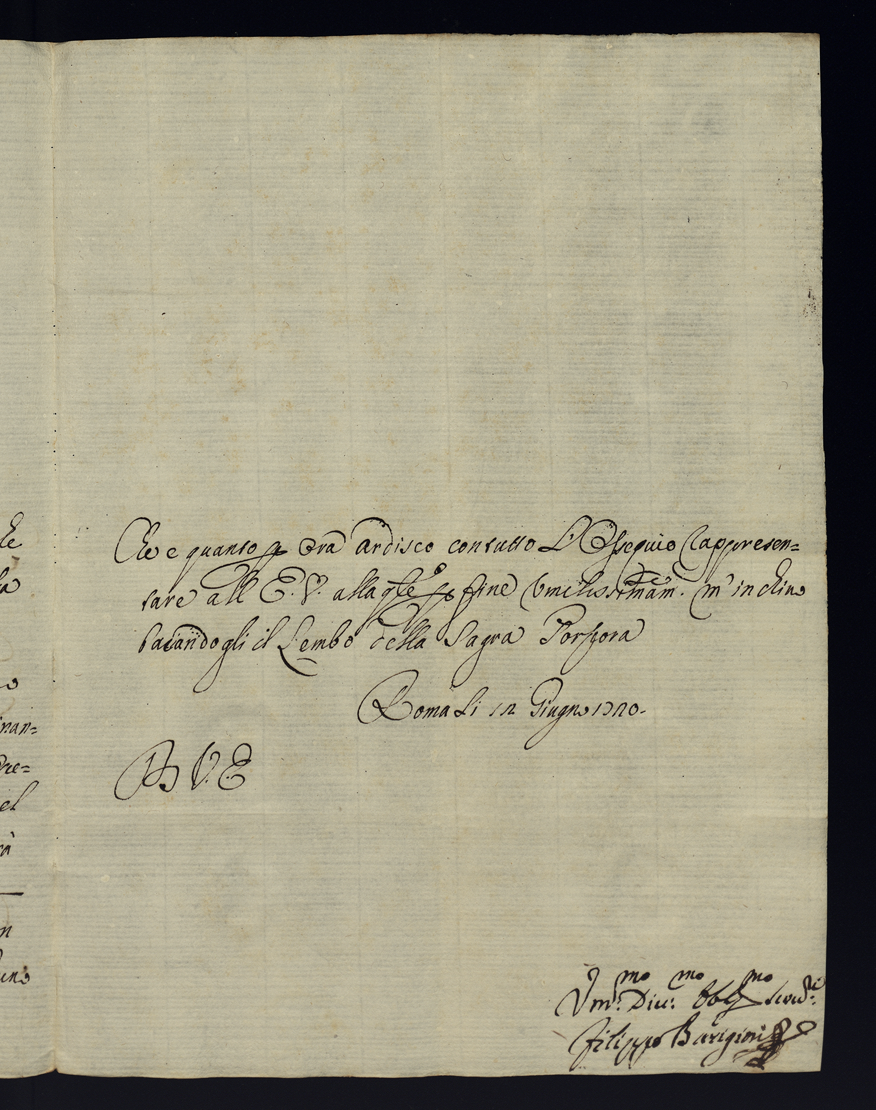 Che e quanto p ora ardisco con tutto L'Ossequio rappresen=
tare all E. V. alla qle p fine Umilissimam. m'inchino
baciandogli il Lembo della Sagra Porpora
Roma Li 12 Giugno 1720.
D V. E
Um.mo Div.mo Obb.mo Servid.re
Filippo Barigioni
he
la
o
nan=
pre=
el
rà
n
uno